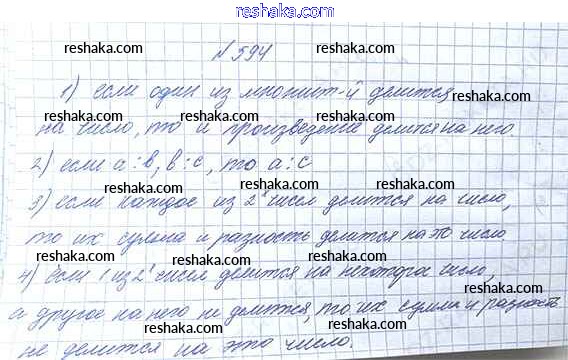 reshaka.com
reshaka.com reshaka.com reshaka.com
№594
1) если один из множит-й делится
reshaka.com
на число, то и произведение делится на него.
reshaka.com reshaka.com
2) если а ⋮ в, в ⋮ с, то а ⋮ с
reshaka.com reshaka.com
3) если каждое из 2ˣ чисел делится на число,
reshaka.com
то их сумма и разность делятся на это число.
reshaka.com reshaka.com reshaka.com
4) если 1 из 2ˣ чисел делится на некоторое число,
reshaka.com
а другое на него не делится, то их сумма и разность
reshaka.com reshaka.com
не делится на это число.